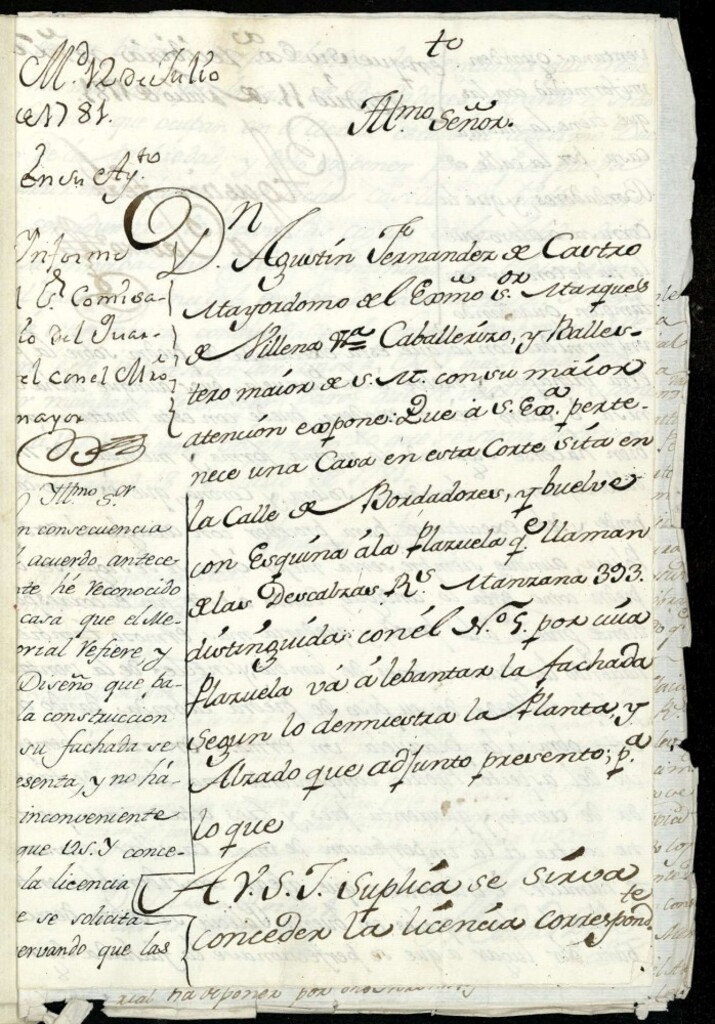 M.d 12 de Julio
de 1781.
En su Ay.to
Informe
el S.r Comisa-
rio del Quar-
tel con el Mro
mayor
Yllmo S.or
En consecuencia
del acuerdo, antece-
dente hé reconocido
la casa que el Me-
morial refiere y
Diseño que pa-
ra la construccion
de su fachada se
presenta, y no há-
inconveniente
que V.S.Y conce-
da la licencia
que se solicita
observando que las
to
Yllmo Señor.
Dn. Agustin Fernandez de Castro
Mayordomo del Exmo S.or Marques
de Villena Caballerizo, y Balles-
tero maior de S. M. con su maior
atención expone: Que á S. Exa. perte-
nece una Casa en esta Corte sita en
la Calle de Bordadores, y buelve
con Esquina ála Plazuela qe llaman
de las Descalzas Rs. Manzana 393.
distinguida con el No. 5. por cuia
Plazuela vá á lebantar la fachada
segun lo demuestra la Planta, y
Alzado que adjunto presento; pa.
lo que
A V. S. I. Suplíca se sirva
conceder la licencia correspondte